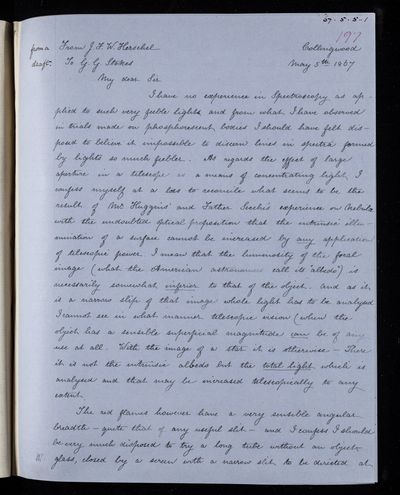 67-5-5-1
197
from a From J. F. W. Herschel Collingwood
draft. To G G Stokes May 5th 1867
My dear Sir
I have no experience in Spectroscopy as ap-
plied to such very feeble lights and from what I have observed
in trials made on phosphorescent bodies I should have felt dis-
posed to believe it impossible to discern lines in spectra formed
by lights so much feebler. As regards the effect of large
aperture in a telescope as a means of concentrating light, I
confess myself at a loss to reconcile what seems to be the
result of Mr. Huggins' and Father Secchi's experience on Nebulæ
with the undoubted optical proposition that the intrinsic illu-
mination of a surface cannot be increased by any application
of telescopic power. I mean that the luminosity of the focal
image (what the American astronomers call its 'albedo') is
necessarily somewhat inferior to that of the object. and as it
is a narrow slip of that image whole light has to be analysed
I cannot see in what manner telescopic vision (when the
object has a sensible superficial magnitude can be of any
use at all. With the image of a star it is otherwise - There
it is not the intrinsic albedo but the total light which is
analysed and that may be increased telescopically to any
extent.
The red flames however have a very sensible angular
breadth - quite that of any useful slit - and I confess I should
be very much disposed to try a long tube without an object-
glass, closed by a screen with a narrow slit to be directed at